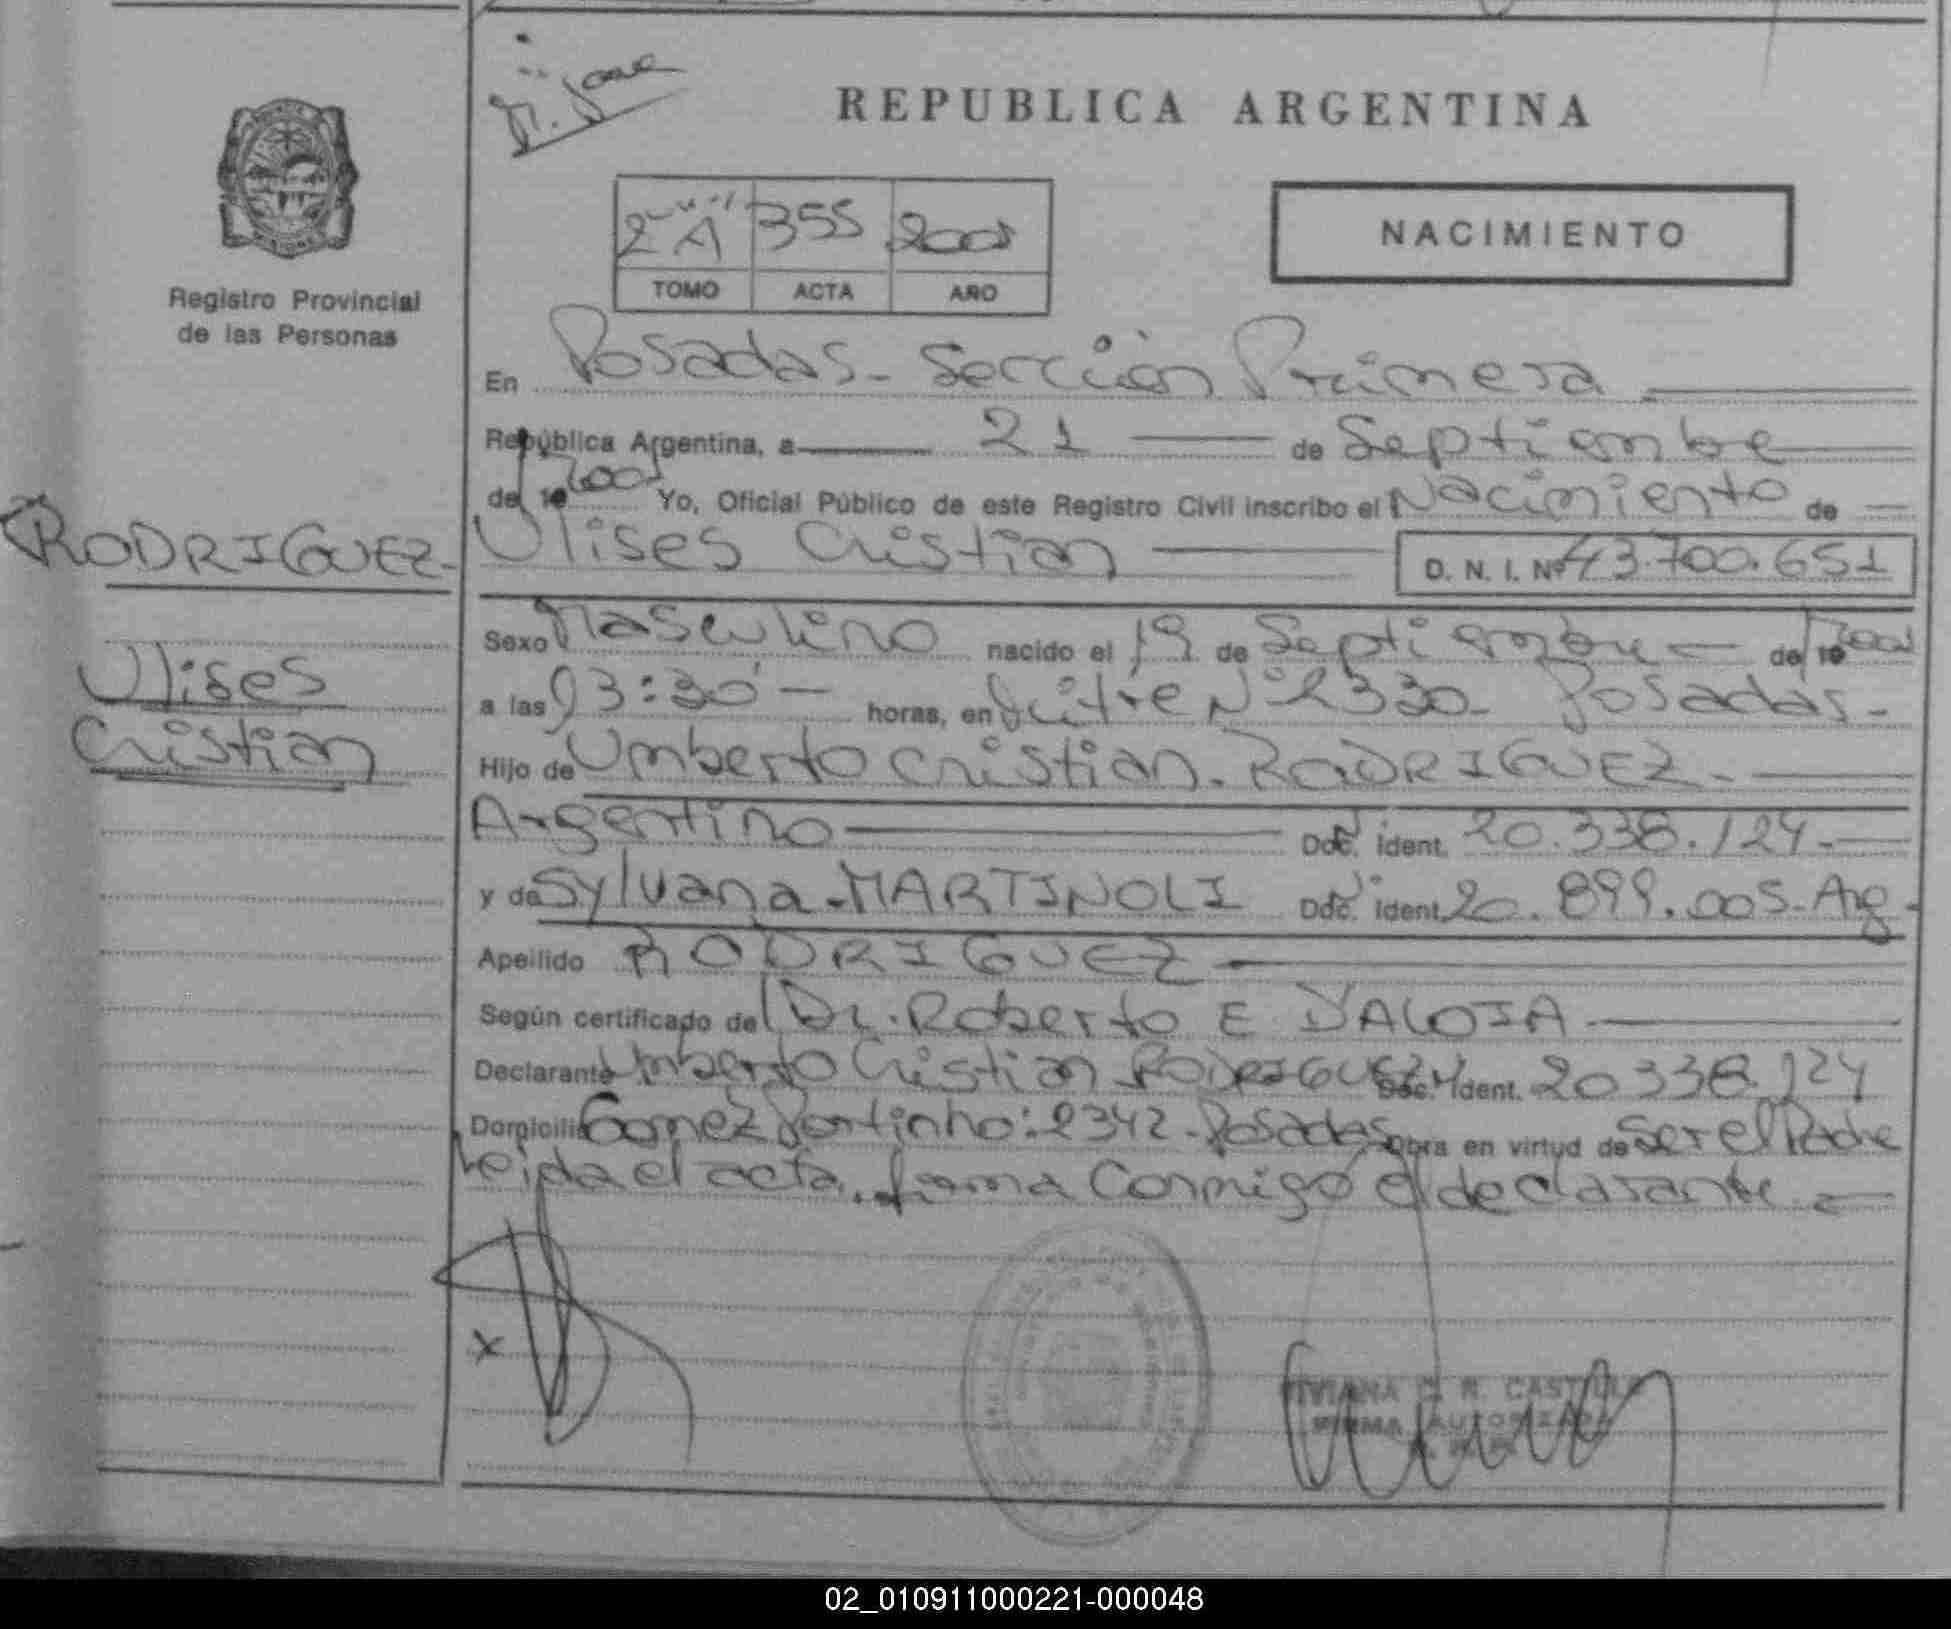 REPUBLICA ARGENTINA
2º "A" 355 2001
TOMO ACTA AÑO
NACIMIENTO
Registro Provincial
de las Personas
En Posadas - Sección Primera
República Argentina, a 21 de Septiembre
de 2001 Yo, Oficial Público de este Registro Civil inscribo el Nacimiento de
RODRIGUEZ -
Ulises
Cristian
Ulises Cristian D. N. I. Nº 43.700.651
Sexo Masculino nacido el 19 de Septiembre de 2001
a las 03:30 horas, en Mitre Nº 2330 - Posadas -
Hijo de Umberto Cristian - RODRIGUEZ -
Argentino Doc. Ident. 20.338.124 -
y de Sylvana - MARTINOLI Doc. Ident. 20.899.005 - Arg -
Apellido RODRIGUEZ
Según certificado del Dr. Roberto E D'ALOIA
Declarante Umberto Cristian RODRIGUEZ Doc. Ident. 20338.124
Domicilio Gomez Portinho: 2342 - Posadas Obra en virtud de Ser el Padre
Leida el acta, firma Conmigo el declarante -
X
VIVIANA C. R. CASTILLO
FIRMA AUTORIZADA
02_010911000221-000048